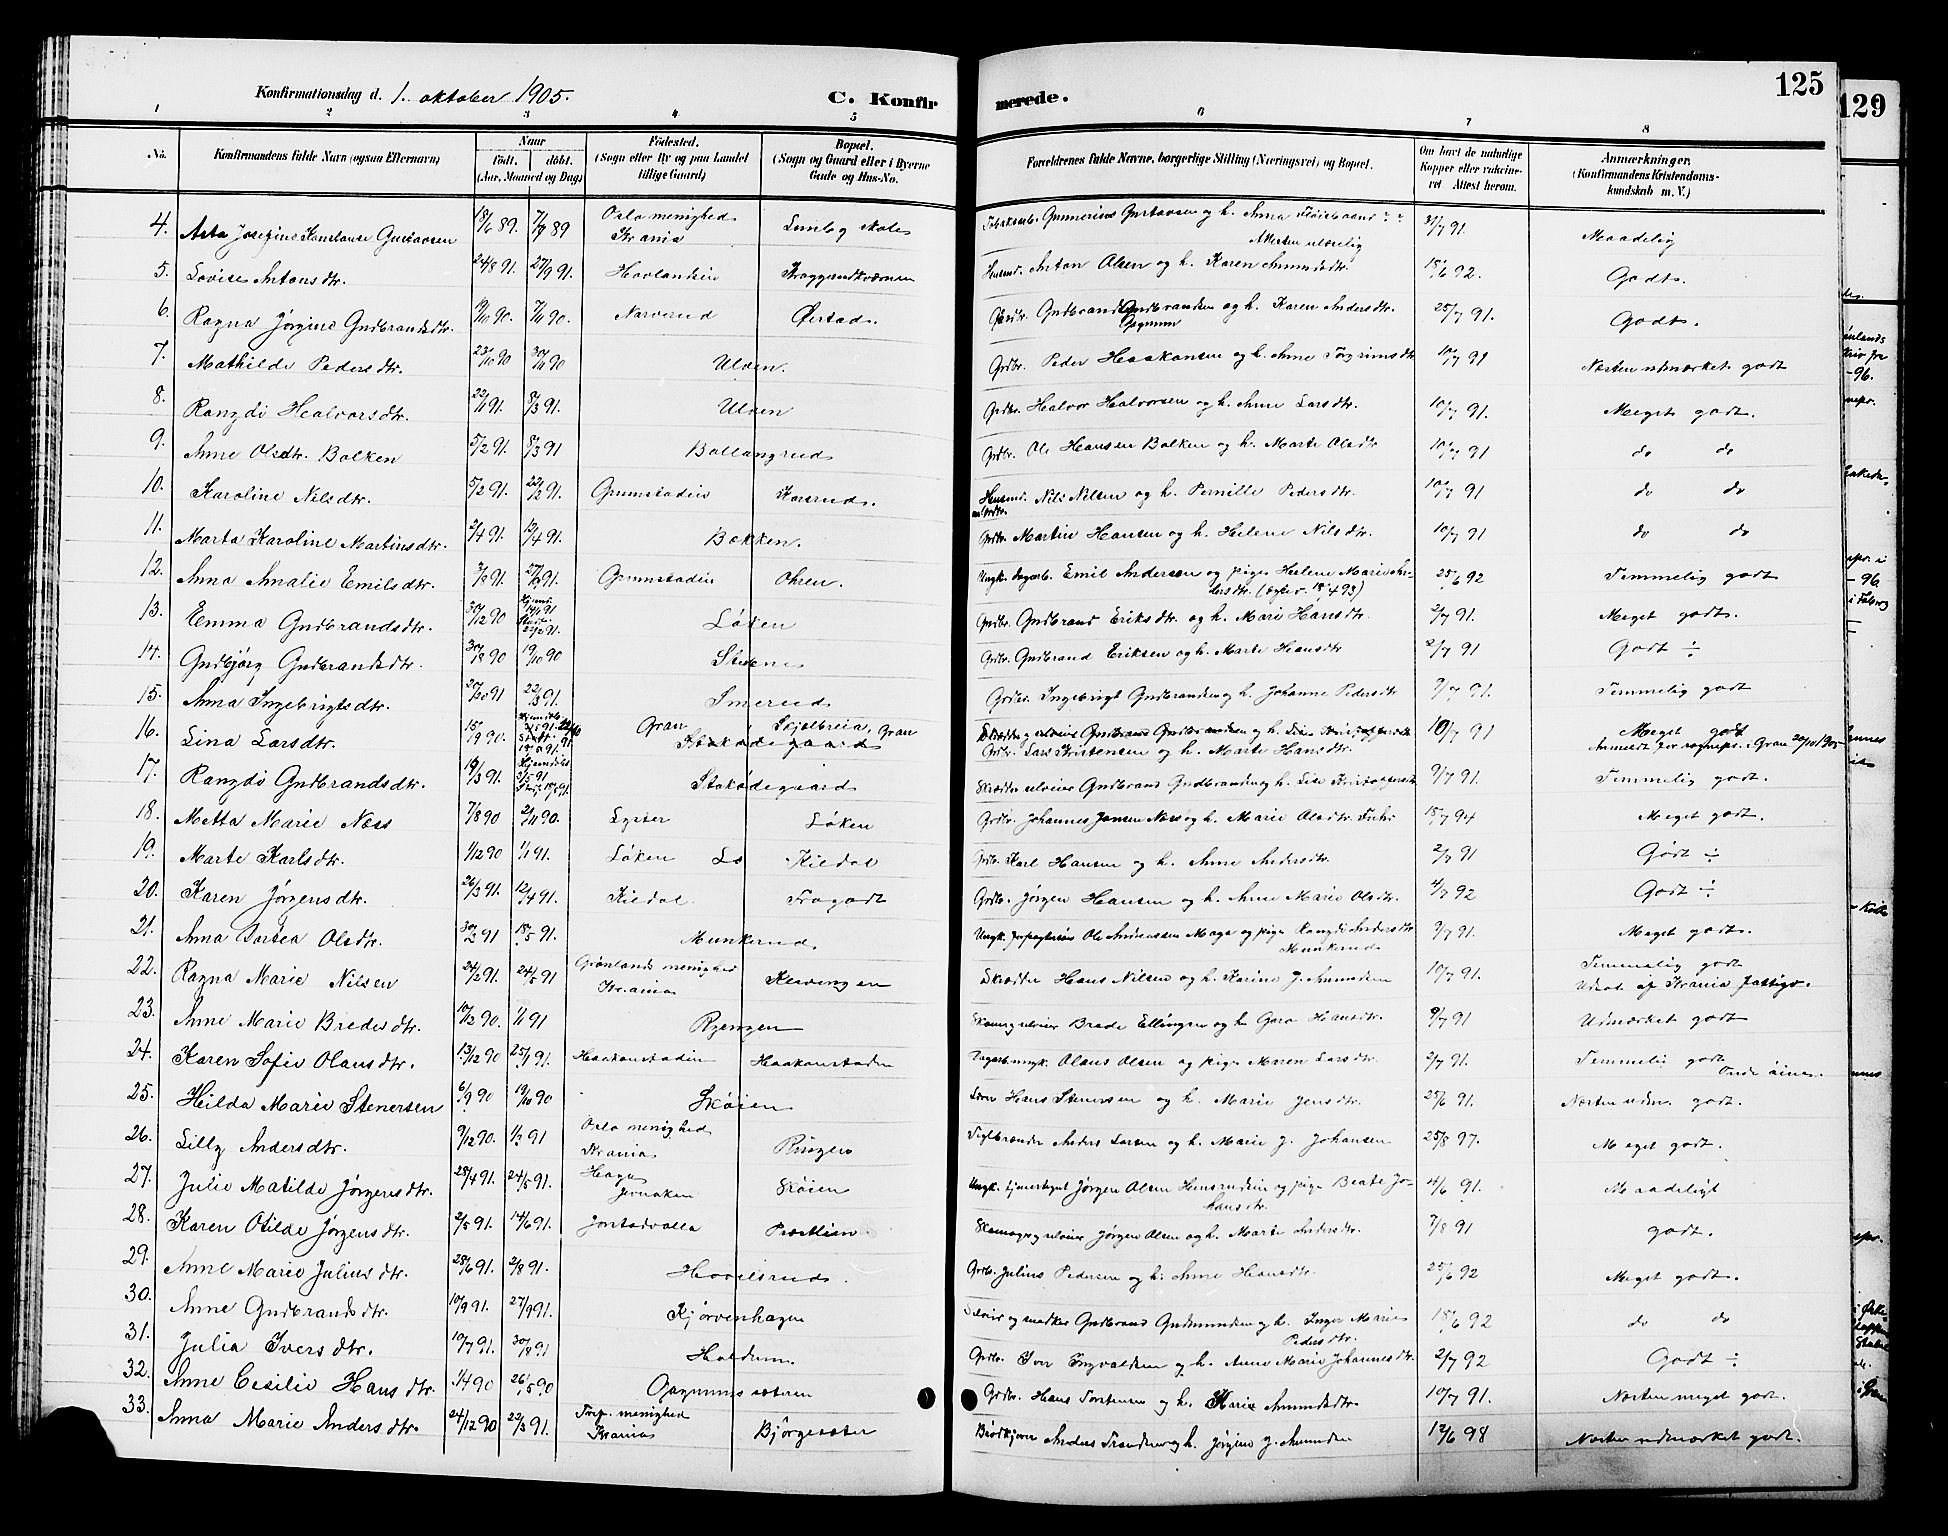 Konfirmationsdag d. 1. oktober 1905.
C. Konfirmerede.
125
129
1 2 3 4 5 6 7 8
No.
Konfirmandens fulde Navn (ogsaa Efternavn)
Naar
født. døbt.
(Aar, Maaned og Dag)
Fødested.
(Sogn eller By og paa Landet tillige Gaard)
Bopæl.
(Sogn og Gaard eller i Byerne Gade og Hus-No.
Forældrenes fulde Navne, borgerlige Stilling (Næringsvei) og Bopæl.
Om havt de naturlige Kopper eller vaccineret. Attest herom.
Anmærkninger.
(Konfirmandens Kristendomskundskab m. V.)
4. Asta Josefine Konstanse Gustavsen 18/6 89. 7/7 89 Oslo menighed Krania skole Gunnerius Gustavsen og h. Anna 31/7 91. Maadelig
5. Lovise Antonsdtr. 24/8 91. 27/9 91. Husmd. Anton Olsen og h. Karen Amundsdtr. 18/6 92. Godt.
6. Ragna Jørgine Gudbrandsdtr. 7/11 90. Narverud Ørstad. Gudbrand Gudbrandsen og h. Karen Andersdtr. 25/7 91. Godt.
7. Mathilde Pedersdtr. 23/10 90 30/11 90 Ulven. Grdbr. Peder Haakonsen og h. Anne Torgrimsdtr 10/7 91 Næsten udmærket godt
8. Rangdi Halvorsdtr. 22/1 91. 8/3 91. Ulven Grdbr. Halvor Halvorsen og h. Anne Larsdtr. 10/7 91. Meget godt.
9. Anne Olsdtr. Bolken 5/2 91. 8/3 91 Ballangrud Grdbr. Ole Hansen Bolken og h. Marte Olsdtr 10/7 91 do do
10. Karoline Nilsdtr. 5/2 91. 22/2 91. Grimstadeie Korsrud. Husmd. Nils Nilsen og h. Pernille Pedersdtr. 10/7 91 do do
11. Marta Karoline Martinsdtr. 2/4 91. 12/4 91. Bakken. Grdbr. Martin Hansen og h. Helene Nilsdtr. 10/7 91 do do
12. Anna Amalie Emilsdtr. Grimstadeie Ohren. Ungk. dagarb. Emil Andersen og pige Helene Marie Andersdtr. 25/6 92 Temmelig godt
13. Emma Gudbrandsdtr. 30/12 90 Løken Grdbr. Gudbrand Eriksdtr. og h. Mari Hansdtr. 2/7 91. Meget godt.
14. Gudbjørg Gudbrandsdtr. 30/8 90 19/10 90 Stuene Grdbr. Gudbrand Eriksen og h. Marte Hansdtr 2/7 91 Godt ÷
15. Anna Ingebrigtsdtr. 22/3 91. Smerud Grdbr. Ingebrigt Gudbrandsen og h. Johanne Pedersdtr 9/7 91. Temmelig godt
16. Lina Larsdtr. Gran Skjelbreia, Gran Grdbr. Lars Kristensen og h. Marte Hansdtr. 10/7 91 Meget godt
17. Rangdi Gudbrandsdtr. Stakødegaard Skrædder selveier Gudbrand Gudbrandsen og h. Lise Kristoffersdtr 9/7 91. Temmelig godt.
18. Metta Marie Næss 7/8 90 2/11 90. Lyster Løken Grdbr. Johannes Jonsen Næss og h. Marie Olsdtr. 18/7 94 Meget godt.
19. Marte Karlsdtr. 1/12 90 1/1 91. Løken Kildal Grdbr. Karl Hansen og h. Anne Andersdtr. 2/7 91 Godt ÷
20. Karen Jørgensdtr. 26/3 91. 12/4 91. Kildal Fragodt Grdbr. Jørgen Hansen og h. Anne Marie Olsdtr. 4/7 92 Godt ÷
21. Anna Dortea Olsdtr. 18/5 91. Munkerud Ungk. Ole Andreassen Moger og pige Rangdi Andersdtr Munkerud 9/7 91. Meget godt.
22. Ragna Marie Nilsen 24/2 91. 24/5 91 Grønlands menighed Krania Klevengen Skrædder Hans Nilsen og h. Karine J. Amundsen 10/7 91. Temmelig godt Udsat af Krania fattigv.
23. Anne Marie Bredesdtr. 10/12 90. 1/1 91 Ryengen Skomag. selveier Brede Ellingsen og h. Goro Hansdtr. 9/7 91 Udmærket godt
24. Karen Sofie Olausdtr. 13/12 90 25/1 91. Haakonstadeie Haakonstadeie Dagarb. ungk. Olaus Olsen og pige Maren Larsdtr. 2/7 91. Temmelig godt
25. Hilda Marie Stenersen 6/9 90 19/10 90 Skøien Hans Stenersen og h. Marie Jensdtr. 25/6 91. Næsten udm. godt.
26. Lilly Andersdtr. 9/12 90. 1/3 91 Oslo menighed Krania Ringen Teglbrænder Anders Larsen og h. Marie J. Johansen 25/8 97. Meget godt.
27. Julie Matilde Jørgensdtr. 28/4 91. 24/5 91. Haga Jevnaker Skøien Ungk. Jørgen Olsen og pige Beate Johansdtr. 4/6 91. Maadeligt
28. Karen Otilde Jørgensdtr. 2/5 91. 14/6 91. Skomager selveier Jørgen Olsen og h. Marte Andersdtr. 7/8 91 godt.
29. Anne Marie Juliusdtr. 28/6 91. 2/8 91. Hovelsrud. Grdbr. Julius Pedersen og h. Anne Hansdtr. 25/6 92 Meget godt.
30. Anne Gudbrandsdtr. 10/9 91. 27/9 91. Kjørvenhagen Gudbrand Gudmundsen og h. Inger Marie Pedersdtr. 18/6 92 do do
31. Julia Iversdtr. 10/7 91. 30/8 91 Haldum. Grdbr. Iver Ingvaldsen og h. Anne Marie Johannesdtr. 2/7 92 Godt ÷
32. Anne Cesilie Hansdtr. 1/4 90 26/5 90 Gagnumssæteren Grdbr. Hans Torstensen og h. Marie Amundsdtr. 10/7 91. Næsten meget godt.
33. Anna Marie Andersdtr. 24/12 90 22/3 91. menighed Krania Bjørgesæter Anders Trondsen og h. Jørgine J. Amundsen 12/6 98 Næsten udmærket godt.